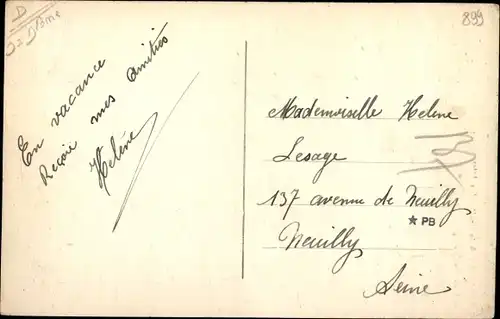 D
Drôme
899
En vacance
Reçois mes amitiés
Helène
Mademoiselle Helene
Lesage
137 avenue de Neuilly
★ PB
Neuilly
Seine